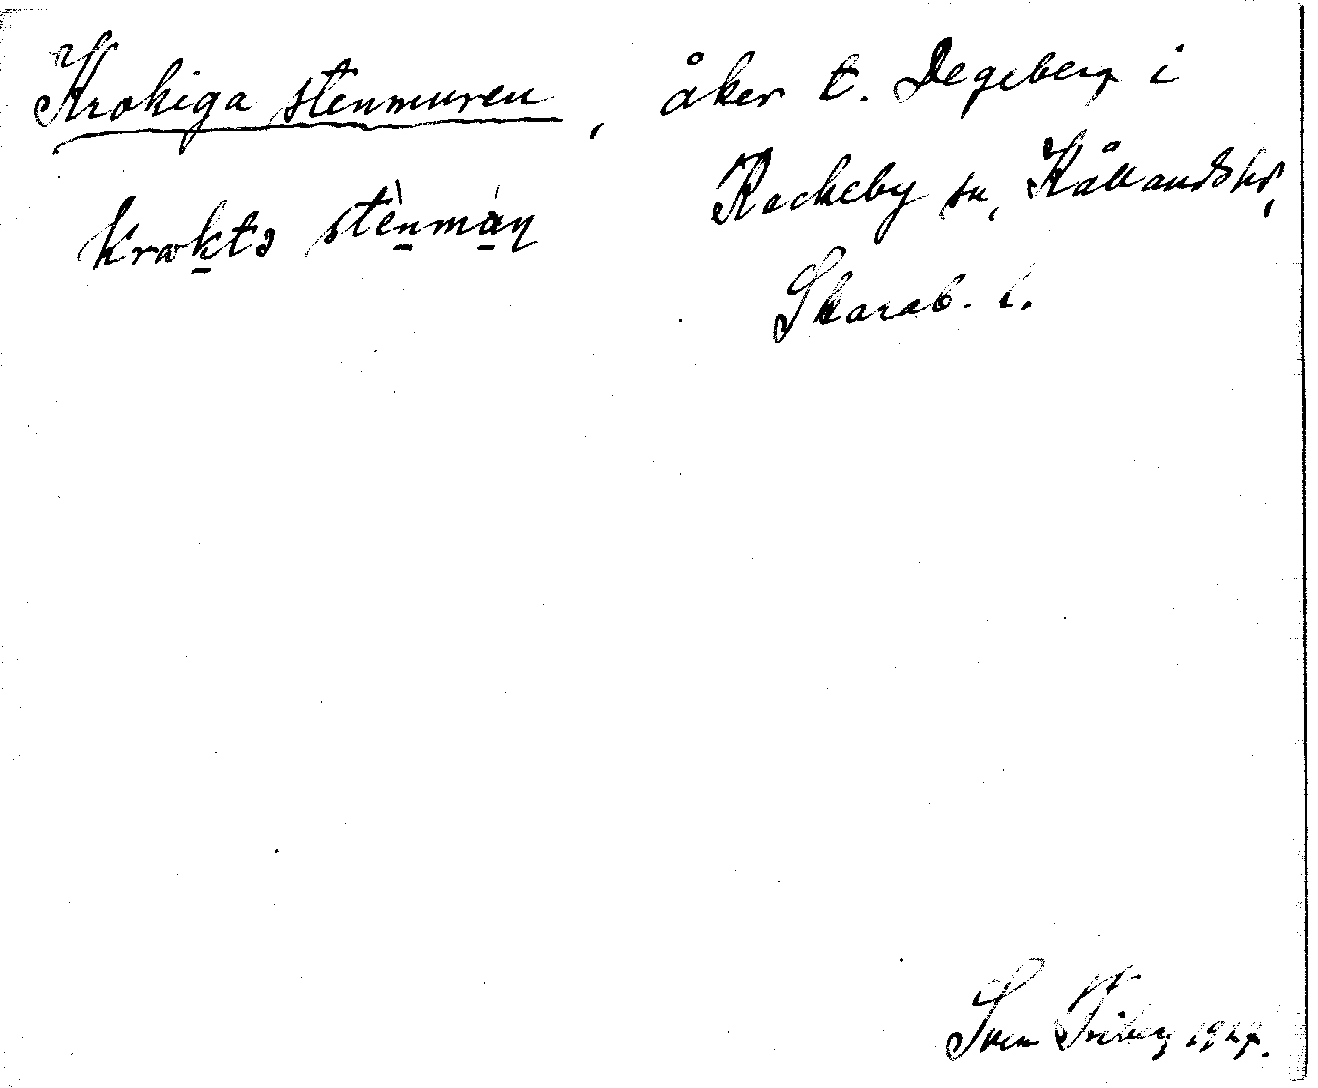 Krokiga stenmuren, åker t. Degeberg i
Rackeby sn, Kållandshd,
Skarab. l.
krokta stènmán
Sven Friberg 1927.